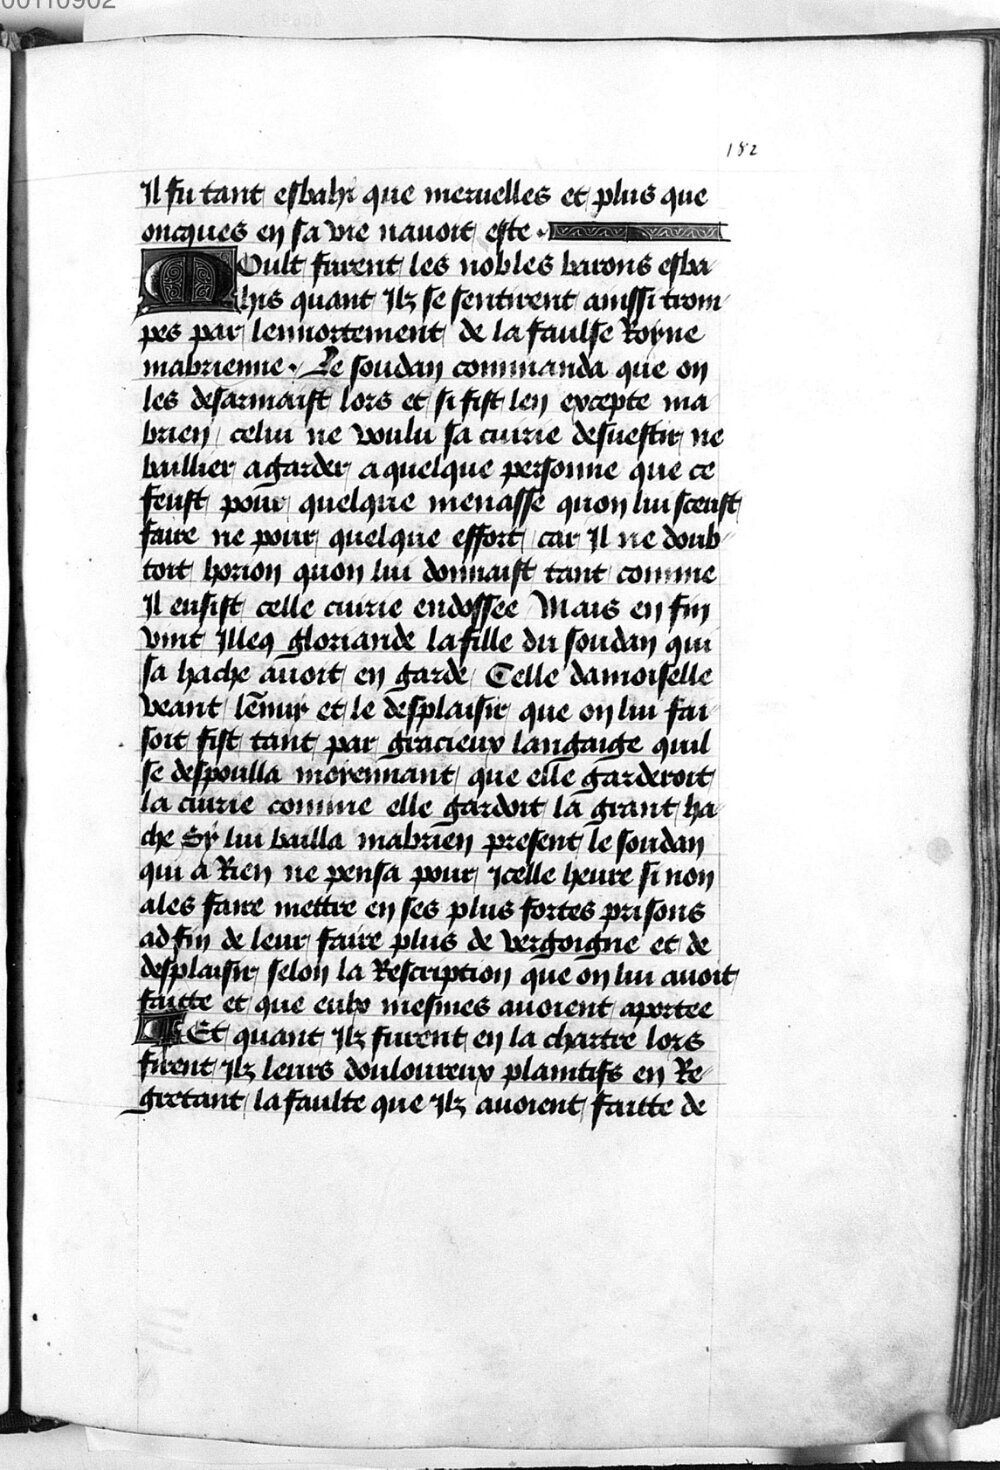 00110902
182
Il fu tant esbahi que meruelles et plus que
oncques en sa vie nauoit este
Moult furent les nobles barons esba
his quant Ilz se sentirent ainssi trom
pes par lennortement de la faulse Royne
mabrienne. Le soudan commanda que on
les desarmaist lors et si fist len excepte ma
brien / celui ne voulu sa cuirie desuestir ne
baillier a garder a quelque personne que ce
feust pour quelque menasse quon lui sceust
faire ne pour quelque effort / car Il ne doub
toit horion quon lui donnaist tant comme
Il eusist celle cuirie endossee Mais en fin
vint Illeq gloriande la fille du soudan qui
sa hache auoit en garde / Celle damoiselle
veant lēnuy et le desplaisir que on lui fai
soit fist tant par gracieux langaige quil
se despoulla moyennant que elle garderoit
la cuirie comme elle gardoit la grant ha
che Sy lui bailla mabrien present le soudan
qui a Rien ne pensa pour Icelle heure si non
a les faire mettre en ses plus fortes prisons
ad fin de leur faire plus de vergoigne et de
desplaisir selon la Rescription que on lui auoit
faitte et que eulx mesmes auoient aportee
Et quant Ilz furent en la chartre lors
firent Ilz leurs douloureux plaintifs en Re
gretant la faulte que Ilz auoient faitte de